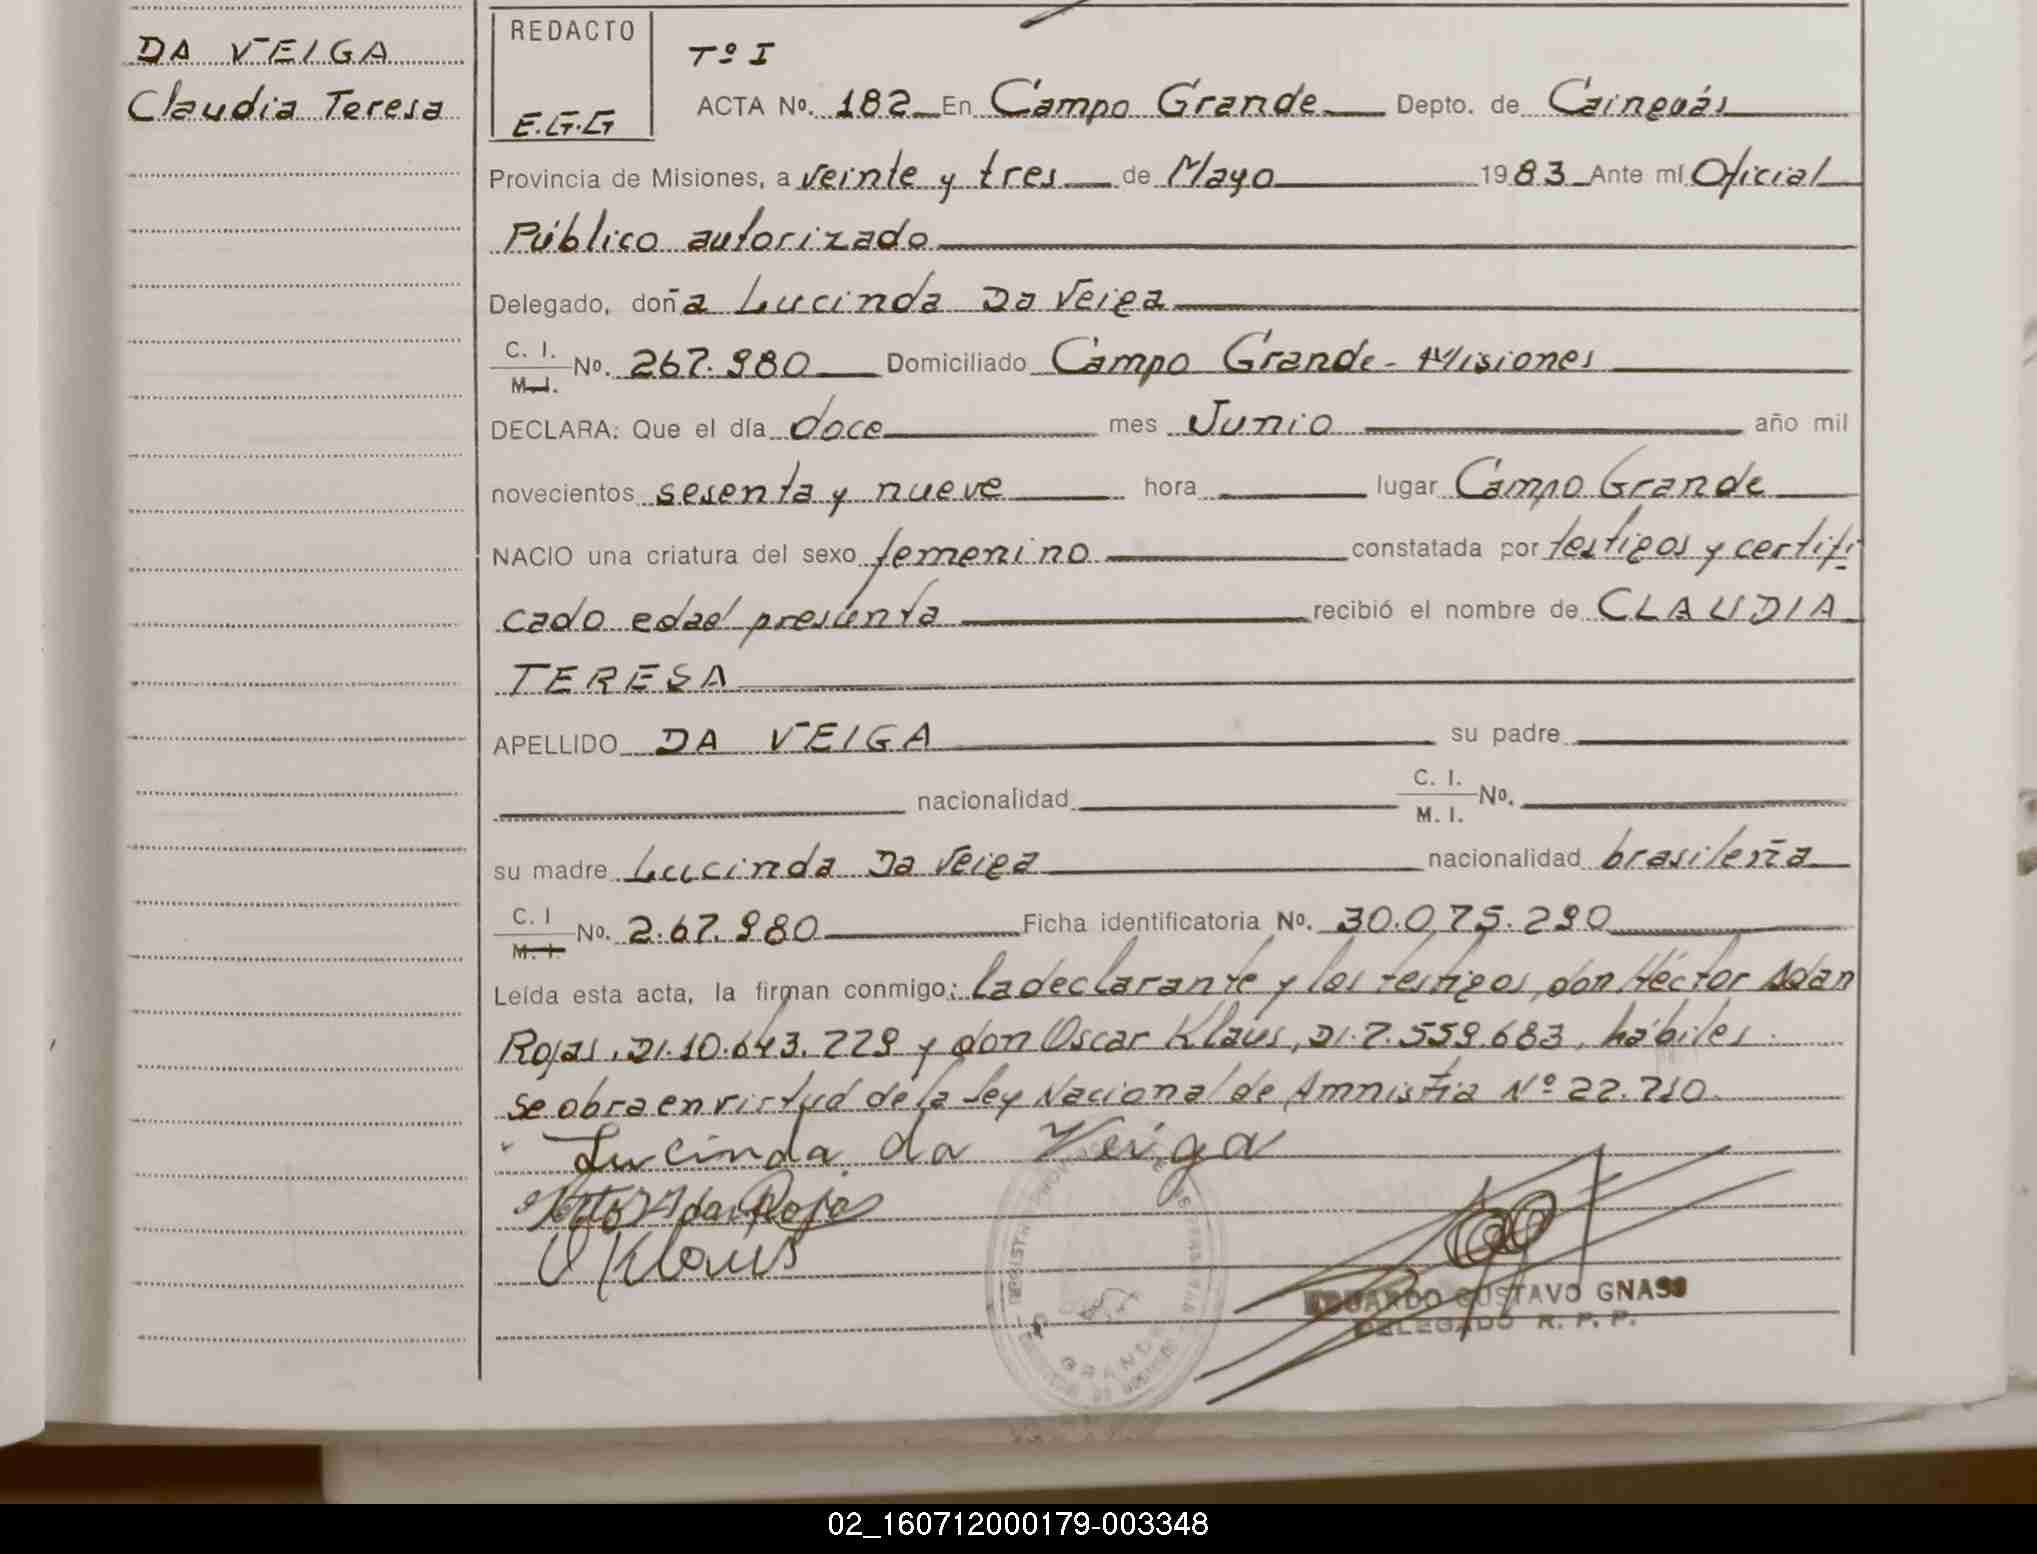 DA VEIGA
Claudia Teresa
REDACTO
E.G.G
Tº I
ACTA Nº. 182 En Campo Grande Depto. de Cainguás
Provincia de Misiones, a veinte y tres de Mayo 1983 Ante mí Oficial
Público autorizado
Delegado, doña Lucinda Da Veiga
C. I.
M. I.
Nº. 267.980 Domiciliado Campo Grande - Misiones
DECLARA: Que el día doce mes Junio año mil
novecientos sesenta y nueve hora lugar Campo Grande
NACIO una criatura del sexo femenino constatada por testigos y certifi
cado edad presunta recibió el nombre de CLAUDIA
TERESA
APELLIDO DA VEIGA su padre
nacionalidad C. I.
M. I. Nº.
su madre Lucinda Da Veiga nacionalidad brasileña
C. I
M. I.
Nº. 2.67.980 Ficha identificatoria Nº. 30.075.290
Leída esta acta, la firman conmigo: la declarante y los testigos, don Héctor Adan
Rojas, DI. 10.643.729 y don Oscar Klaus, DI. 7.559.683, hábiles.
Se obra en virtud de la Ley Nacional de Amnistía Nº 22.710.
Lucinda da Veiga
O Klaus
EDUARDO GUSTAVO GNASS
DELEGADO R. P. P.
GRANDE
02_160712000179-003348